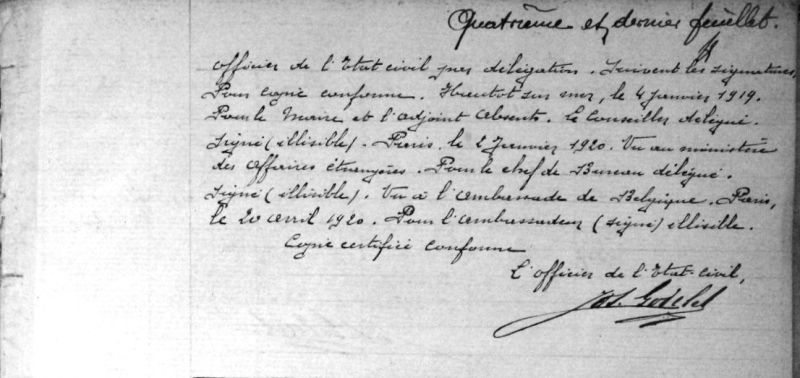 Quatrième et dernier feuillet.
officier de l'Etat civil par délégation. Suivent les signatures,
Pour copie conforme. sur mer, le 4 Janvier 1919.
Pour le Maire et l'adjoint absents. Le Conseiller délégué.
Signé (illisible). Paris, le 2 Janvier 1920. Vu au ministère
des affaires étrangères. Pour le chef de Bureau délégué.
Signé (illisible). Vu à l'ambassade de Belgique. Paris,
le 20 avril 1920. Pour l'ambassadeur (signé) illisible.
Copie certifiée conforme
L'officier de l'Etat-civil,
Jos.